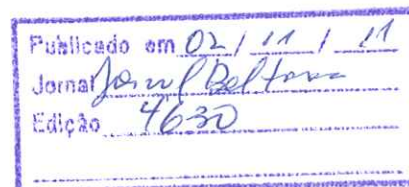 Publicado em 02 / 11 / 11
Jornal Jornal Beltrão
Edição 4630